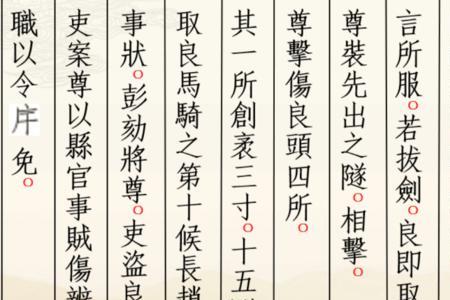 言所服。若拔劍。良即取
尊裝先出之隧。相擊。
尊擊傷良頭四所。
其一所創袤三寸。十五
取良馬騎之第十候長
事狀。彭劾將尊。吏盜良
吏案尊以縣官事賊傷辨
職以令免。